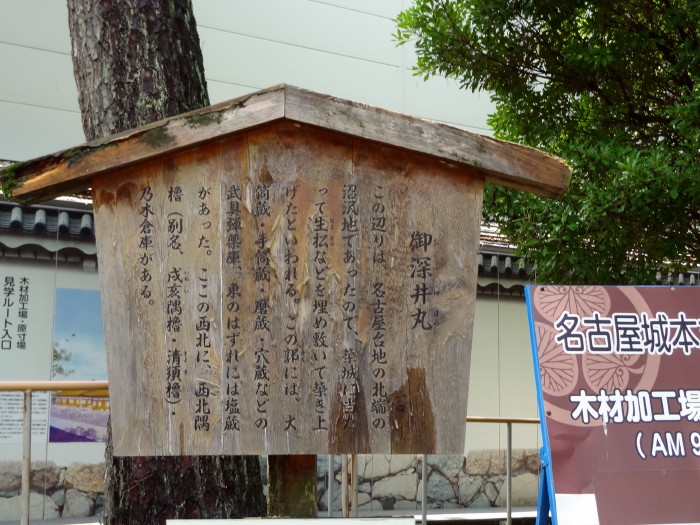 御深井丸
お ふけ まる
この辺りは、名古屋台地の北端の
沼沢地であったので、築城に当た
って生松などを埋め敷いて築き上
げたといわれる。この郭には、大
筒蔵・手筒蔵・磨蔵・穴蔵などの
武具弾薬庫、東のはずれには塩蔵
があった。ここの西北に、西北隅
櫓（別名、戌亥隅櫓・清須櫓・
乃木倉庫がある。
木材加工場・原寸場
見学ルート入口
名古屋城本
木材加工場
（AM 9